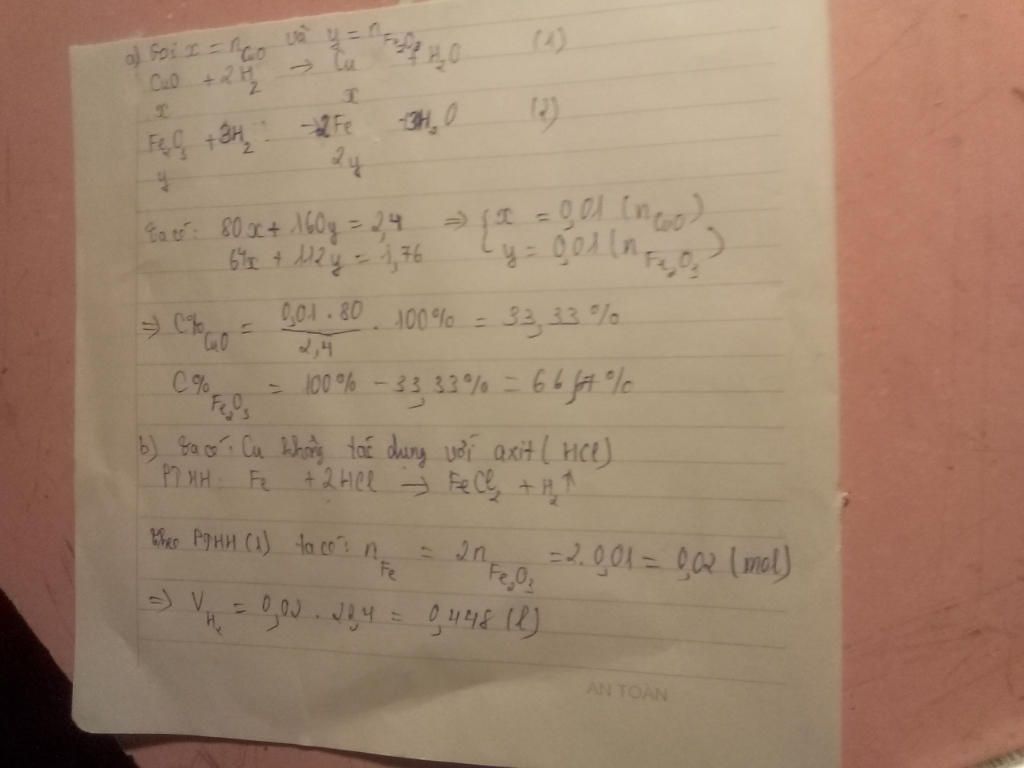 a) Gọi x = nCuO và y = nFe2O3
CuO + 2H2 → Cu + H2O (1)
x x
Fe2O3 + 3H2 → 2Fe + 3H2O (2)
y 2y
Ta có: 80x + 160y = 2,4 ⇒ { x = 0,01 (nCuO)
64x + 112y = 1,76 { y = 0,01 (nFe2O3)
⇒ C%CuO = 0,01 . 80 / 2,4 . 100% = 33,33%
C%Fe2O3 = 100% - 33,33% = 66,67%
b) Ta có: Cu không tác dụng với axit (HCl)
PTHH: Fe + 2HCl → FeCl2 + H2↑
Theo PTHH (1) ta có: nFe = 2nFe2O3 = 2.0,01 = 0,02 (mol)
⇒ VH2 = 0,02 . 22,4 = 0,448 (l)
AN TOÀN